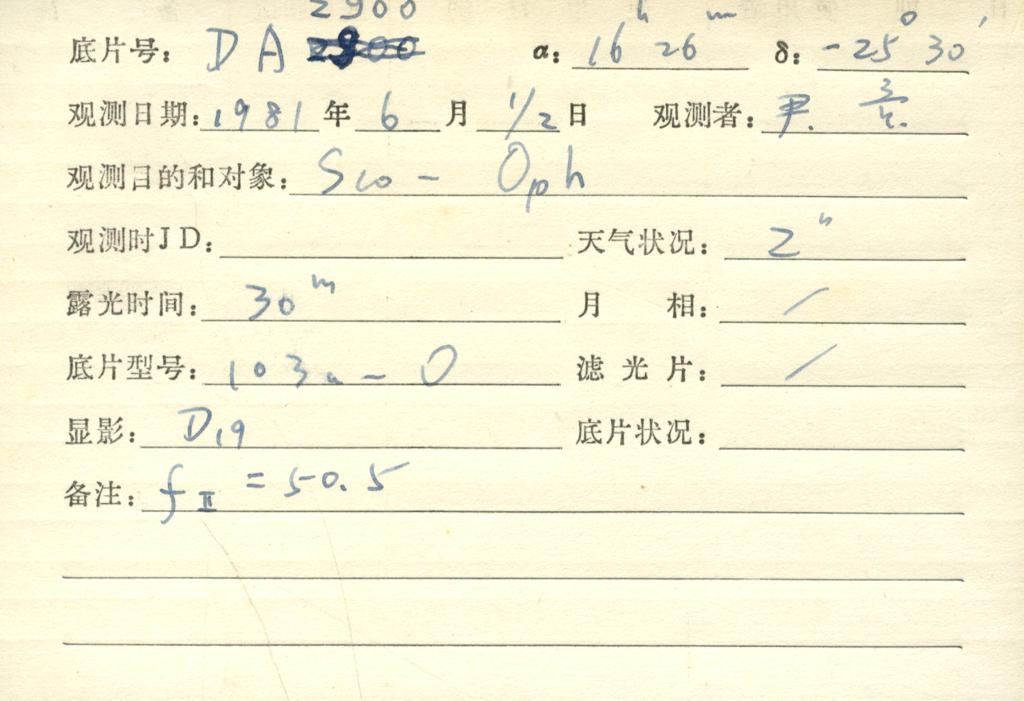 底片号: DA 2900 α: 16h 26m δ: -25° 30′
观测日期: 1981 年 6 月 1/2 日 观测者: 尹.
观测目的和对象: Sco - Oph
观测时JD: 天气状况: 2"
露光时间: 30m 月 相: /
底片型号: 103a-O 滤光片: /
显影: D19 底片状况:
备注: fⅡ = 50.5